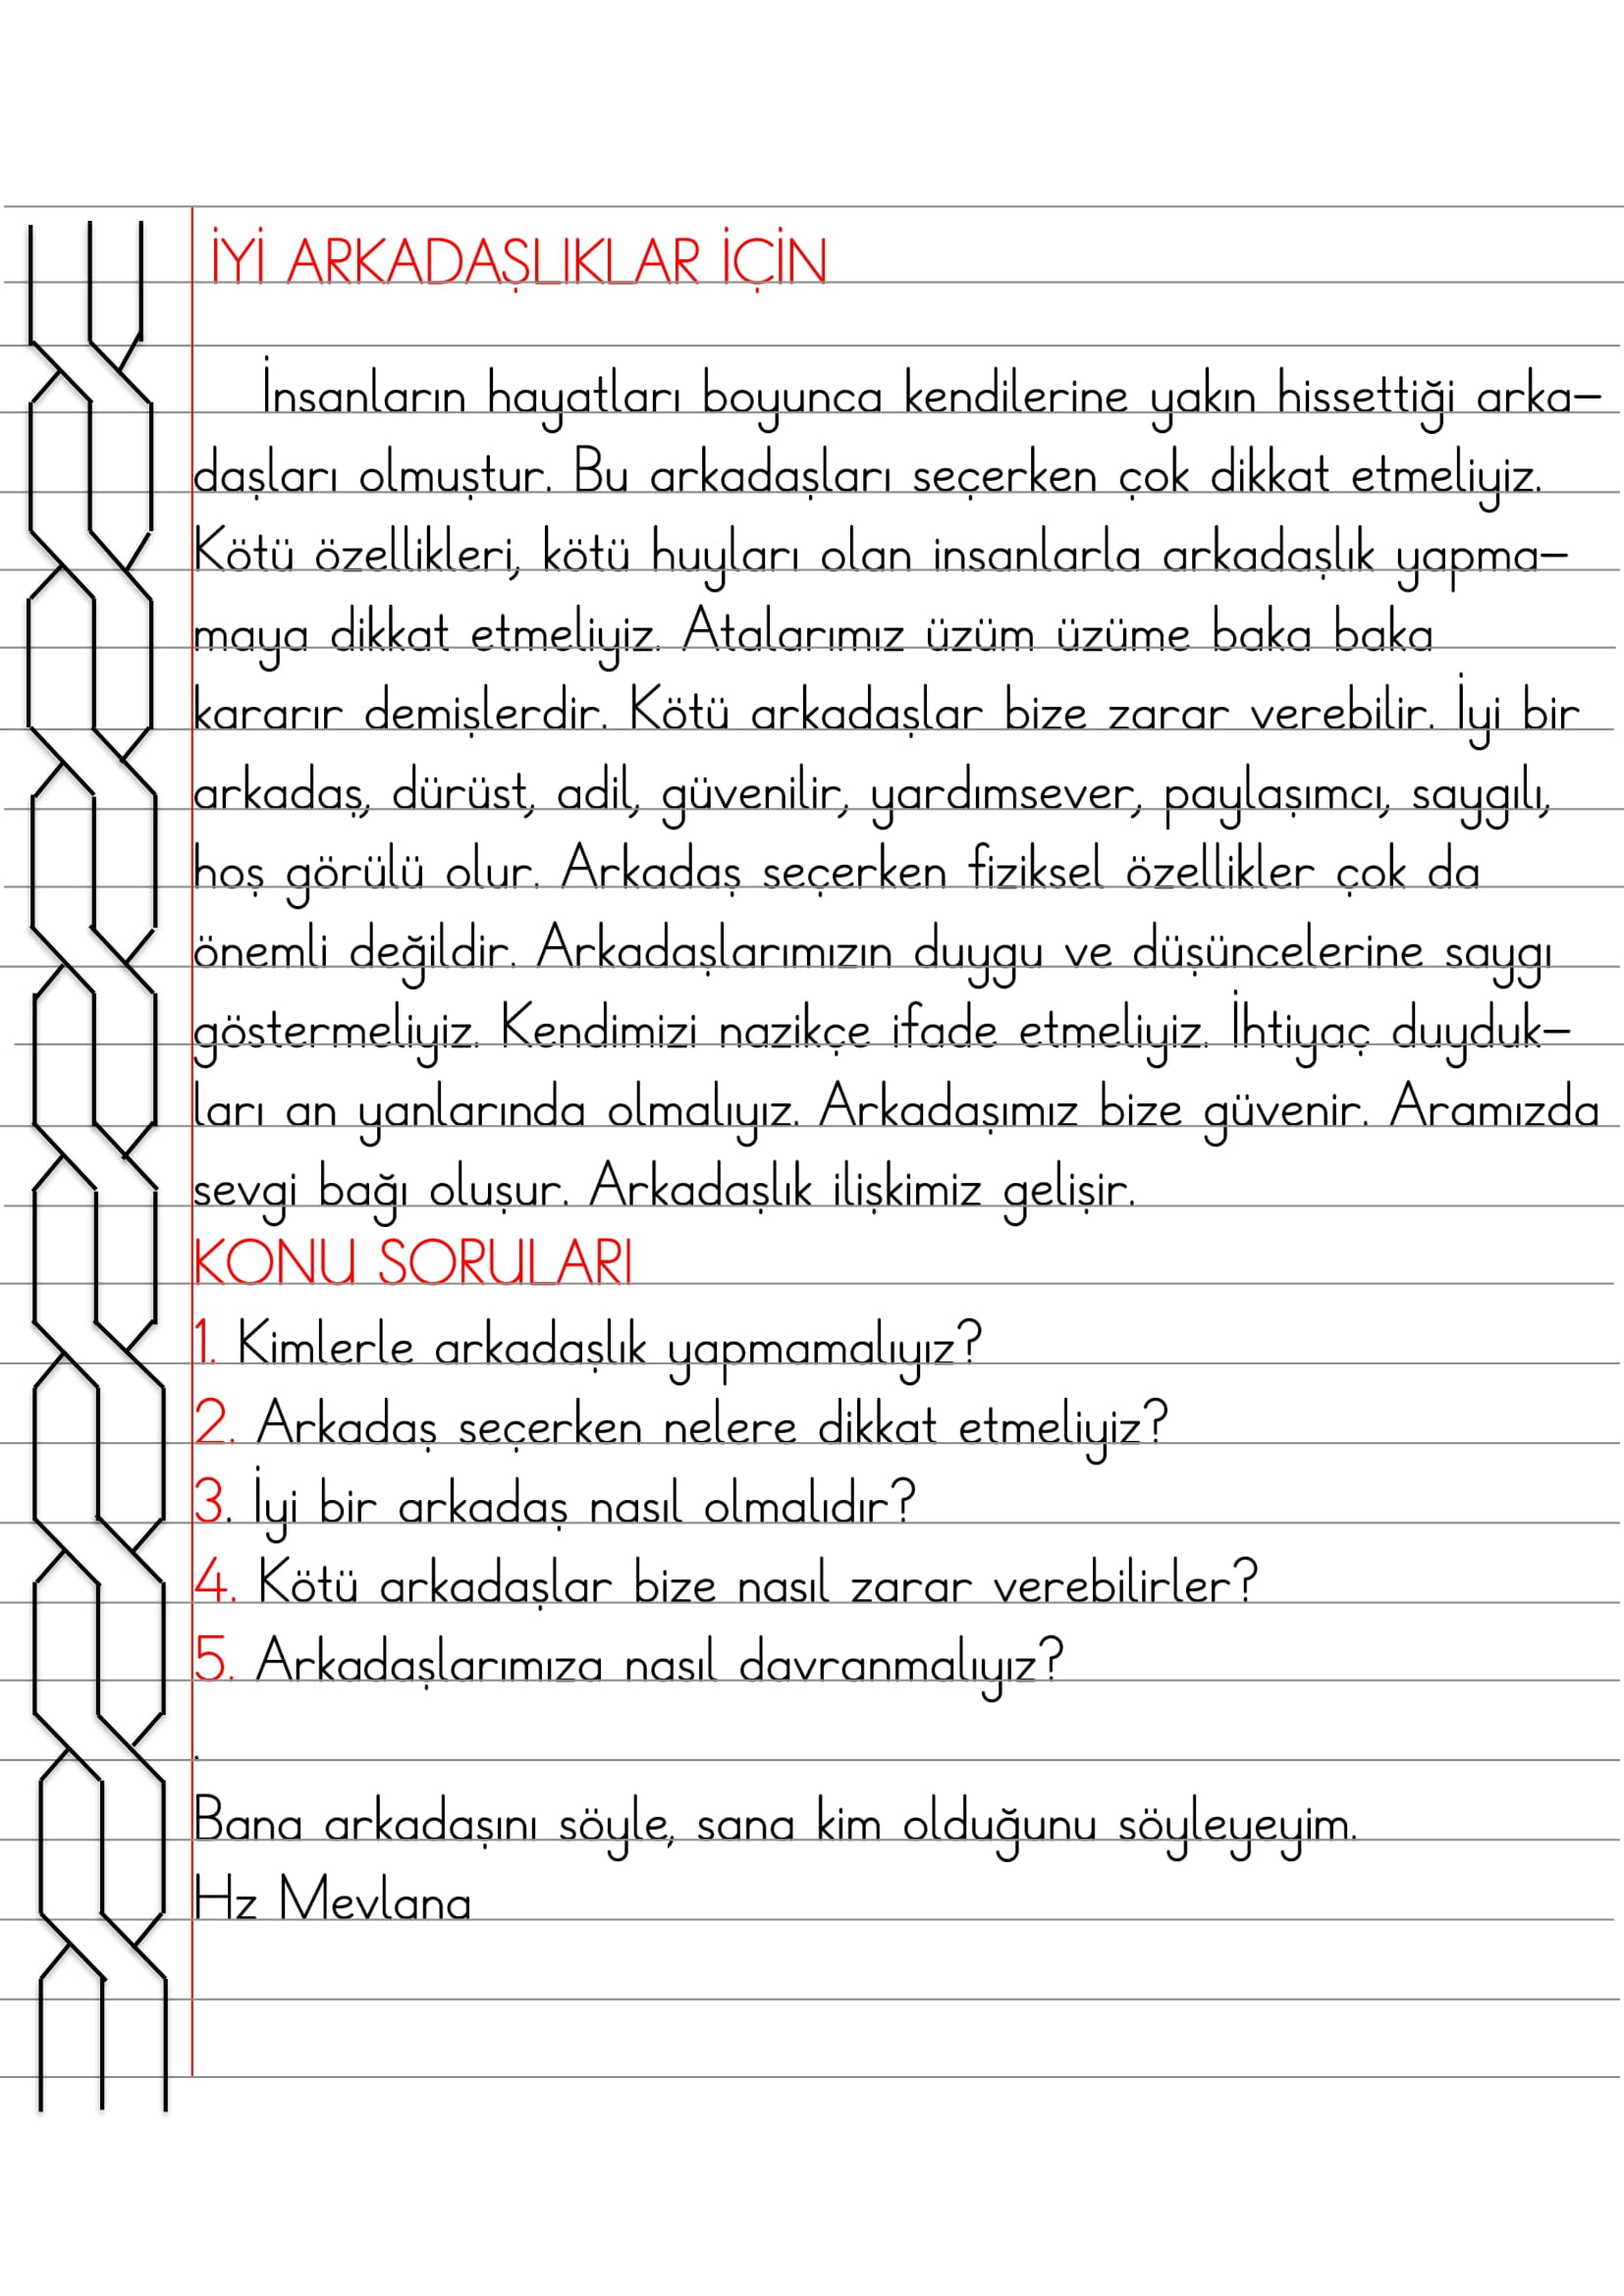 İYİ ARKADAŞLIKLAR İÇİN
İnsanların hayatları boyunca kendilerine yakın hissettiği arka-
daşları olmuştur. Bu arkadaşları seçerken çok dikkat etmeliyiz.
Kötü özellikleri, kötü huyları olan insanlarla arkadaşlık yapma-
maya dikkat etmeliyiz. Atalarımız üzüm üzüme baka baka
kararır demişlerdir. Kötü arkadaşlar bize zarar verebilir. İyi bir
arkadaş, dürüst, adil, güvenilir, yardımsever, paylaşımcı, saygılı,
hoş görülü olur. Arkadaş seçerken fiziksel özellikler çok da
önemli değildir. Arkadaşlarımızın duygu ve düşüncelerine saygı
göstermeliyiz. Kendimizi nazikçe ifade etmeliyiz. İhtiyaç duyduk-
ları an yanlarında olmalıyız. Arkadaşımız bize güvenir. Aramızda
sevgi bağı oluşur. Arkadaşlık ilişkimiz gelişir.
KONU SORULARI
1. Kimlerle arkadaşlık yapmamalıyız?
2. Arkadaş seçerken nelere dikkat etmeliyiz?
3. İyi bir arkadaş nasıl olmalıdır?
4. Kötü arkadaşlar bize nasıl zarar verebilirler?
5. Arkadaşlarımıza nasıl davranmalıyız?
.
Bana arkadaşını söyle, sana kim olduğunu söyleyeyim.
Hz Mevlana